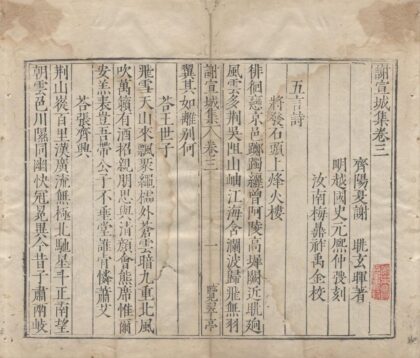 謝宣城集卷三
齊陽夏謝 朓玄暉著
明越國史元熙仲弢刻
汝南梅鼎祚禹金校
五言詩
將發石頭上烽火樓
徘徊戀京邑躑躅曾阿陵高墀闕近眺迥
風雲多荊吳阻山岫江海含瀾波歸飛無羽
翼其如離別何
謝宣城集 卷三 一 覽翠亭
答王世子
飛雪天山來飄聚繩櫺外蒼雲暗九重北風
吹萬籟有酒招親朋思與清顏會熊席惟爾
安羔裘豈吾帶公子不垂堂誰肯憐蕭艾
答張齊興
荊山嵸百里漢廣流無極北馳星斗正南望
朝雲色川隰同幽快冠冕異今昔子肅兩岐